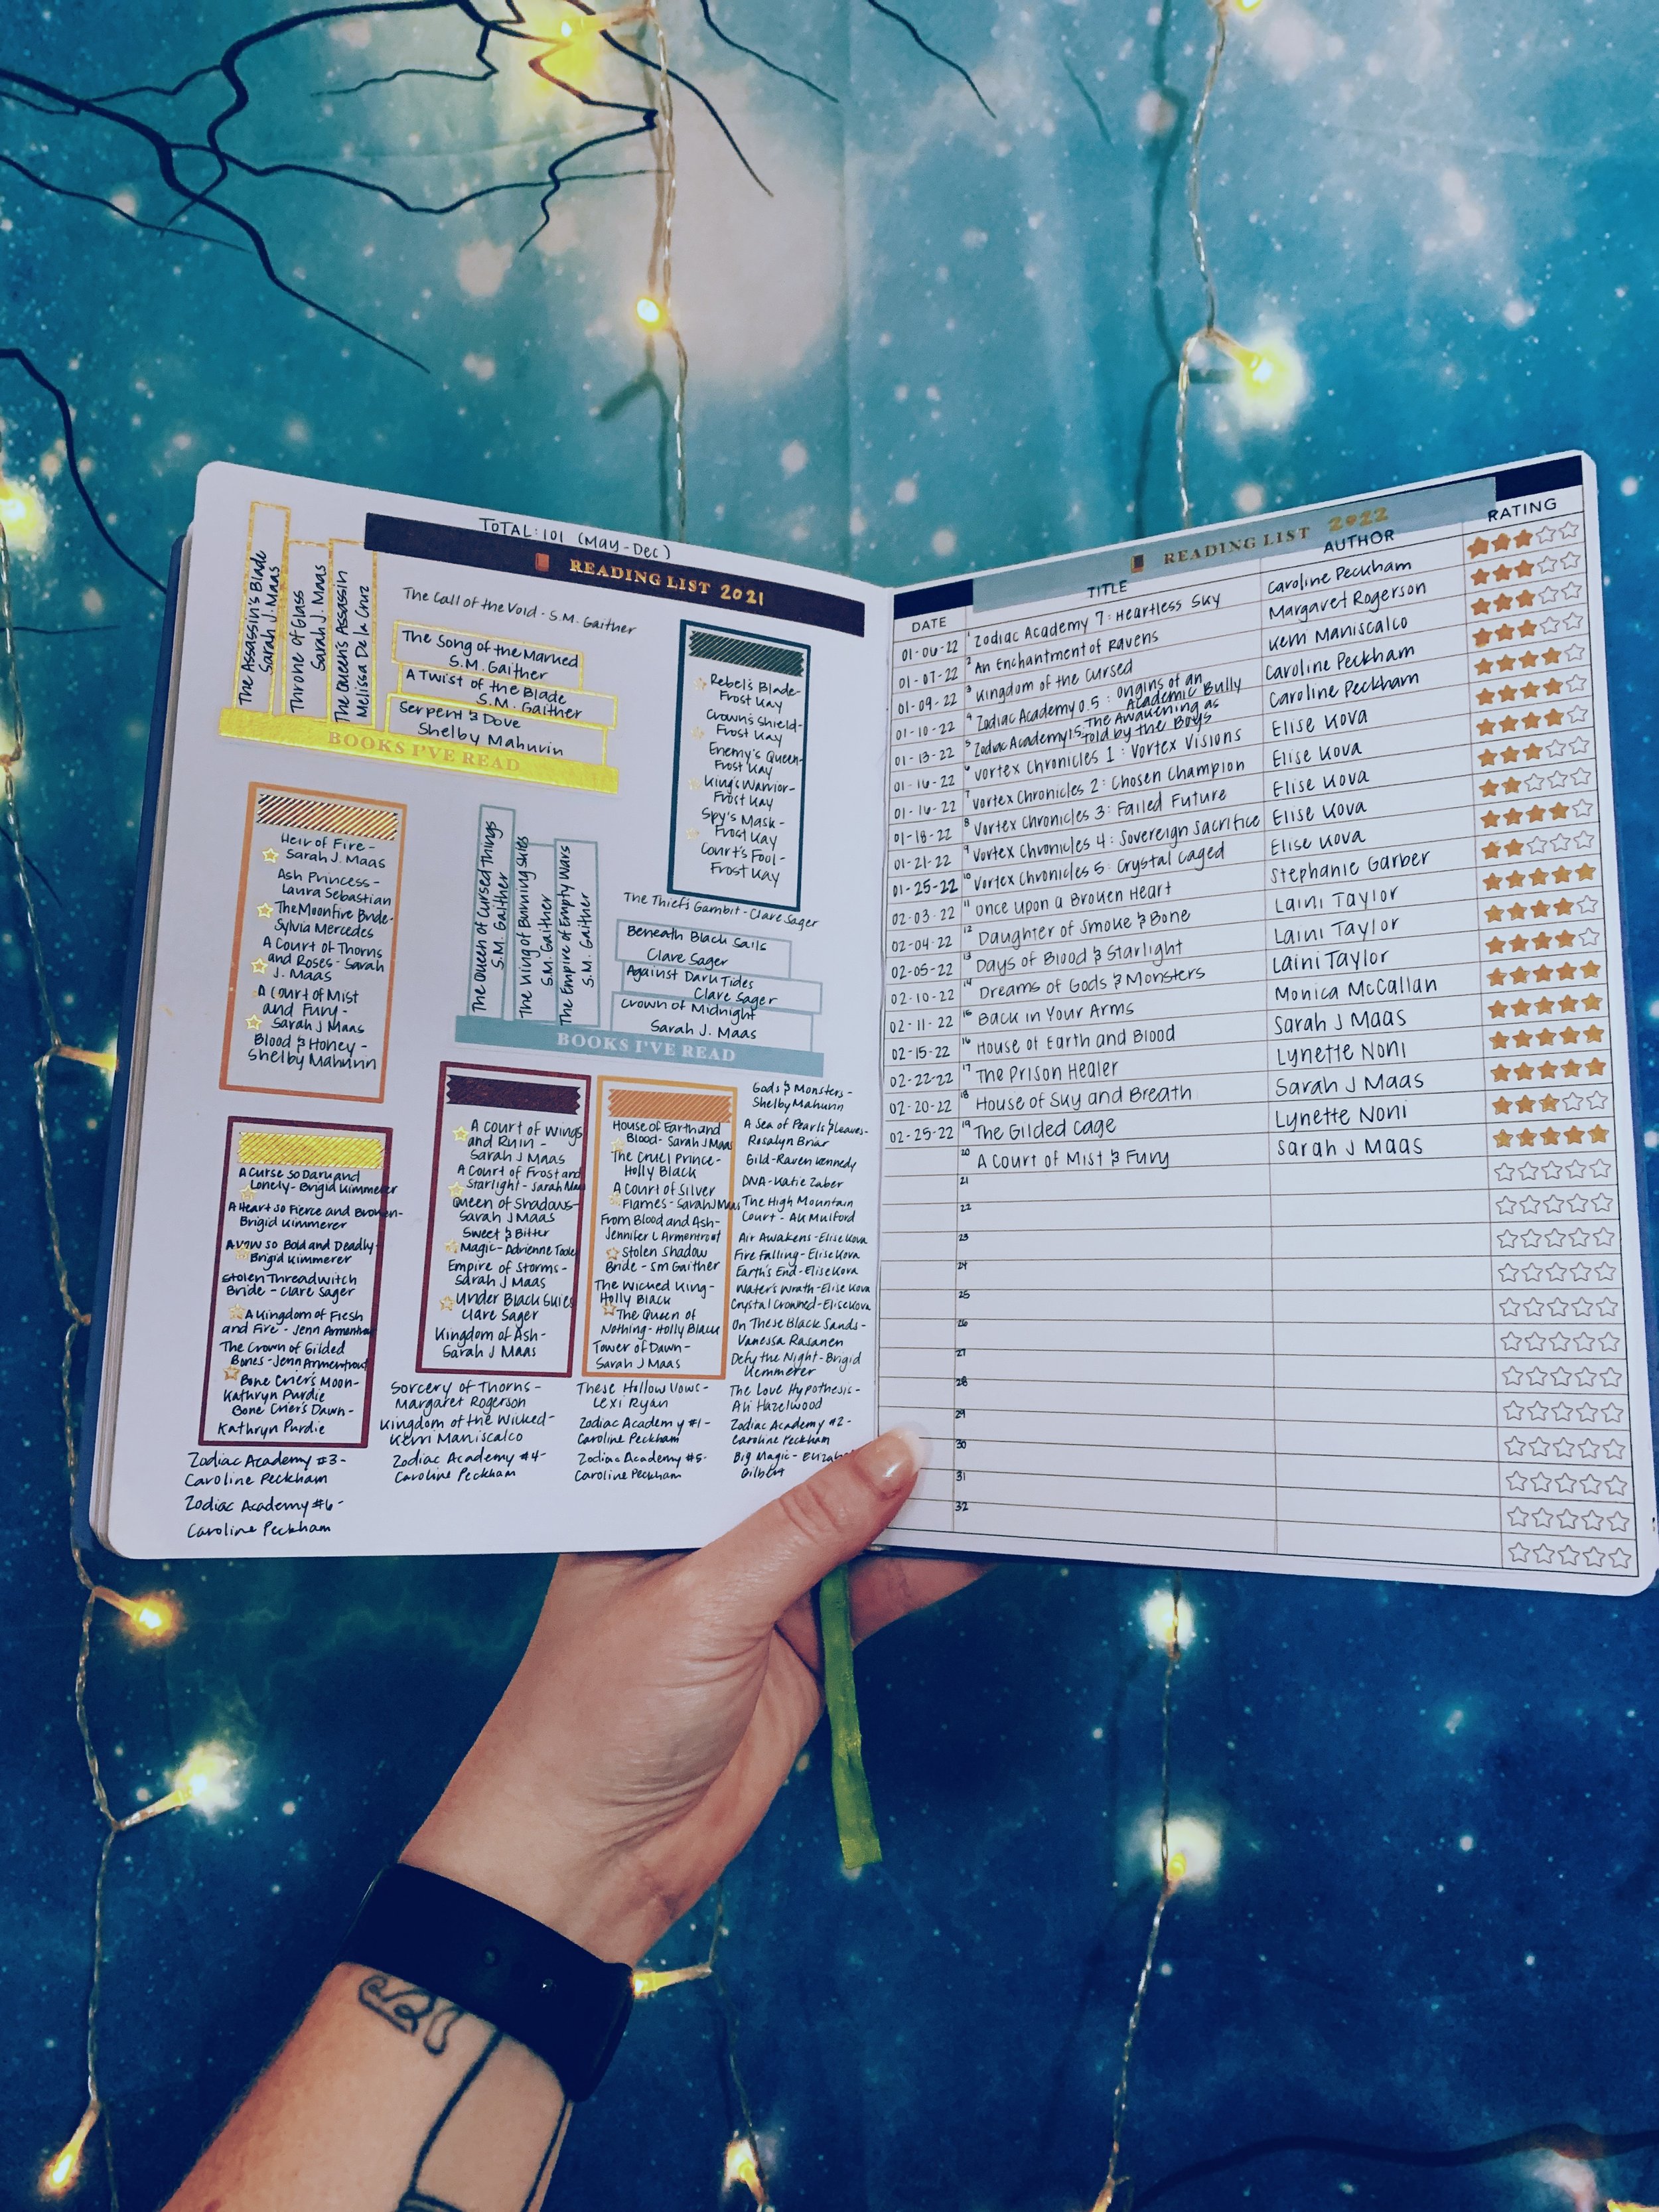 TOTAL: 101 (May-Dec)
READING LIST 2021
The Assassin's Blade
Sarah J. Maas
Throne of Glass
Sarah J. Maas
The Queen's Assassin
Melissa De la Cruz
The Call of the Void - S.M. Gaither
The Song of the Marked
S.M. Gaither
A Twist of the Blade
S.M. Gaither
Serpent & Dove
Shelby Mahurin
BOOKS I'VE READ
Rebel's Blade-
Frost Kay
Crown's Shield-
Frost Kay
Enemy's Queen-
Frost Kay
King's Warrior-
Frost Kay
Spy's Mask-
Frost Kay
Court's Fool-
Frost Kay
Heir of Fire -
Sarah J. Maas
Ash Princess -
Laura Sebastian
The Moonfire Bride-
Sylvia Mercedes
A Court of Thorns
and Roses - Sarah
J. Maas
A Court of Mist
and Fury -
Sarah J Maas
Blood & Honey -
Shelby Mahurin
The Queen of Cursed Things
S.M. Gaither
The King of Burning Skies
S.M. Gaither
The Empire of Empty Wars
S.M. Gaither
The Thief's Gambit - Clare Sager
Beneath Black Sails
Clare Sager
Against Dark Tides
Clare Sager
Crown of Midnight
Sarah J. Maas
BOOKS I'VE READ
A Curse so Dark and
Lonely - Brigid Kimmerer
A Heart so Fierce and Broken-
Brigid Kimmerer
A vow so Bold and Deadly-
Brigid Kimmerer
Stolen Threadwitch
Bride - Clare Sager
A Kingdom of Flesh
and Fire - Jenn Armentrout
The Crown of Gilded
Bones - Jenn Armentrout
Bone Crier's Moon-
Kathryn Purdie
Bone Crier's Dawn-
Kathryn Purdie
A Court of Wings
and Ruin -
Sarah J Maas
A Court of Frost and
Starlight - Sarah Maas
Queen of Shadows-
Sarah J Maas
Sweet & Bitter
Magic - Adrienne Tooley
Empire of Storms-
Sarah J Maas
Under Black Skies
Clare Sager
Kingdom of Ash-
Sarah J Maas
House of Earth and
Blood - Sarah J Maas
The Cruel Prince-
Holly Black
A Court of Silver
Flames - Sarah J Maas
From Blood and Ash-
Jennifer L Armentrout
Stolen Shadow
Bride - SM Gaither
The Wicked King-
Holly Black
The Queen of
Nothing - Holly Black
Tower of Dawn-
Sarah J Maas
Gods & Monsters-
Shelby Mahurin
A Sea of Pearls & Leaves-
Rosalyn Briar
Gild - Raven Kennedy
DNA - Katie Zaber
The High Mountain
Court - AK Mulford
Air Awakens - Elise Kova
Fire Falling - Elise Kova
Earth's End - Elise Kova
Water's Wrath - Elise Kova
Crystal Crowned - Elise Kova
On These Black Sands-
Vanessa Rasanen
Defy the Night - Brigid
Kemmerer
The Love Hypothesis-
Ali Hazelwood
Zodiac Academy #2-
Caroline Peckham
Big Magic -
Gilbert
Sorcery of Thorns-
Margaret Rogerson
Kingdom of the Wicked-
Kerri Maniscalco
Zodiac Academy #4-
Caroline Peckham
These Hollow Vows-
Lexi Ryan
Zodiac Academy #1-
Caroline Peckham
Zodiac Academy #5-
Caroline Peckham
Zodiac Academy #3-
Caroline Peckham
Zodiac Academy #6-
Caroline Peckham
READING LIST 2022
DATE TITLE AUTHOR RATING
01-06-22 1 Zodiac Academy 7: Heartless Sky Caroline Peckham
01-07-22 2 An Enchantment of Ravens Margaret Rogerson
01-09-22 3 Kingdom of the Cursed Kerri Maniscalco
01-10-22 4 Zodiac Academy 0.5: Origins of an Academic Bully Caroline Peckham
01-13-22 5 Zodiac Academy 1.5: The Awakening as told by the Boys Caroline Peckham
01-16-22 6 Vortex Chronicles 1: Vortex Visions Elise Kova
01-16-22 7 Vortex Chronicles 2: Chosen Champion Elise Kova
01-18-22 8 Vortex Chronicles 3: Failed Future Elise Kova
01-21-22 9 Vortex Chronicles 4: Sovereign Sacrifice Elise Kova
01-25-22 10 Vortex Chronicles 5: Crystal Caged Elise Kova
02-03-22 11 Once Upon a Broken Heart Stephanie Garber
02-04-22 12 Daughter of Smoke & Bone Laini Taylor
02-05-22 13 Days of Blood & Starlight Laini Taylor
02-10-22 14 Dreams of Gods & Monsters Laini Taylor
02-11-22 15 Back in Your Arms Monica McCallan
02-15-22 16 House of Earth and Blood Sarah J Maas
02-22-22 17 The Prison Healer Lynette Noni
02-20-22 18 House of Sky and Breath Sarah J Maas
02-25-22 19 The Gilded Cage Lynette Noni
20 A Court of Mist & Fury Sarah J Maas
21
22
23
24
25
26
27
28
29
30
31
32